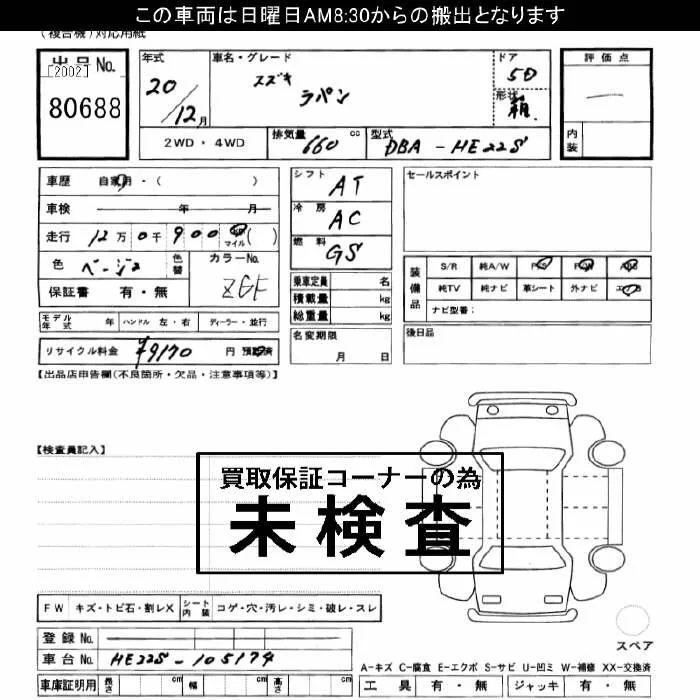 この車両は日曜日AM8:30からの搬出となります
(複合機)対応用紙
出品No.
[2002]
80688
年式 車名・グレード ドア 評価点
20/12月 スズキ ラパン 5D
形状 箱
2WD・4WD 排気量 660 cc 型式 DBA-HE22S 内装
車歴 自家用・( )
車検 年 月
走行 12万0千900 km マイル ( )
色 ベージュ 色替 カラーNo. ZGF
保証書 有・無
シフト AT
冷房 AC
燃料 GS
乗車定員 名
積載量 kg
総重量 kg
セールスポイント
装備品 S/R 純A/W P/S P/W ABS
純TV 純ナビ 革シート 外ナビ エアB
ナビ型番:
モデル年式 年 ハンドル 左・右 ディーラー・並行
名変期限 月 日
後日品
リサイクル料金 ¥9170 円 預託済
【出品店申告欄(不良箇所・欠品・注意事項等)】
【検査員記入】
買取保証コーナーの為
未検査
FW キズ・トビ石・割レX シート内装 コゲ・穴・汚レ・シミ・破レ・スレ
登録No.
車台No. HE22S-105174
スペア
A-キズ C-腐食 E-エクボ S-サビ U-凹ミ W-補修 XX-交換済
車庫証明用 長さ cm 幅 cm 高さ cm 工具 有・無 ジャッキ 有・無